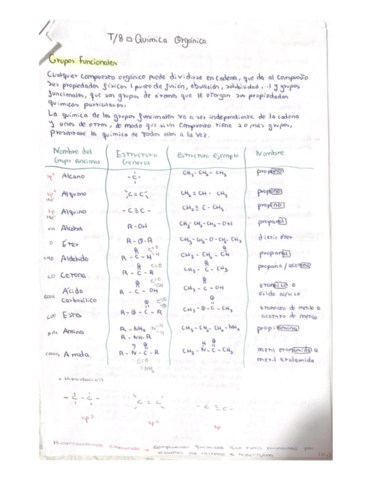 T/8 Química Orgánica
Grupos Funcionales
Cualquier compuesto orgánico puede dividirse en cadena, que da al compuesto
sus propiedades físicas (punto de fusión, ebullición, solubilidad...) y grupos
funcionales, que son grupos de átomos que le otorgan sus propiedades
químicas particulares.
La química de los grupos funcionales va a ser independiente de la cadena
y unos de otros, de modo que si un compuesto tiene 2 o más grupos,
presentará la química de todos ellos a la vez.
Nombre del Grupo Funcional Estructura General Estructura Ejemplo Nombre
Alcano -C- CH3-CH2-CH3 propano
Alqueno C=C CH2=CH-CH3 propeno
Alquino -C≡C- CH≡C-CH3 propino
Alcohol R-OH CH3-CH2-CH2-OH propanol
Éter R-O-R CH3-CH2-O-CH2-CH3 dietil éter
Aldehído R-C-H CH3-CH2-CH propanal
Cetona R-C-R CH3-C-CH3 propano/acetona
Ácido Carboxílico R-C-OH CH3-C-OH etanoico o ácido acético
Ester R-O-C-R CH3-O-C-CH3 etanoato de metilo o acetato de metilo
Amina R-NH2 R-NH-R CH3-CH2-CH2-NH2 propilamina
Amida R-N-C-R CH3-N-C-CH3 metil etanamida o metil acetamida
-C-C- C=C -C≡C-
sp³ sp² sp